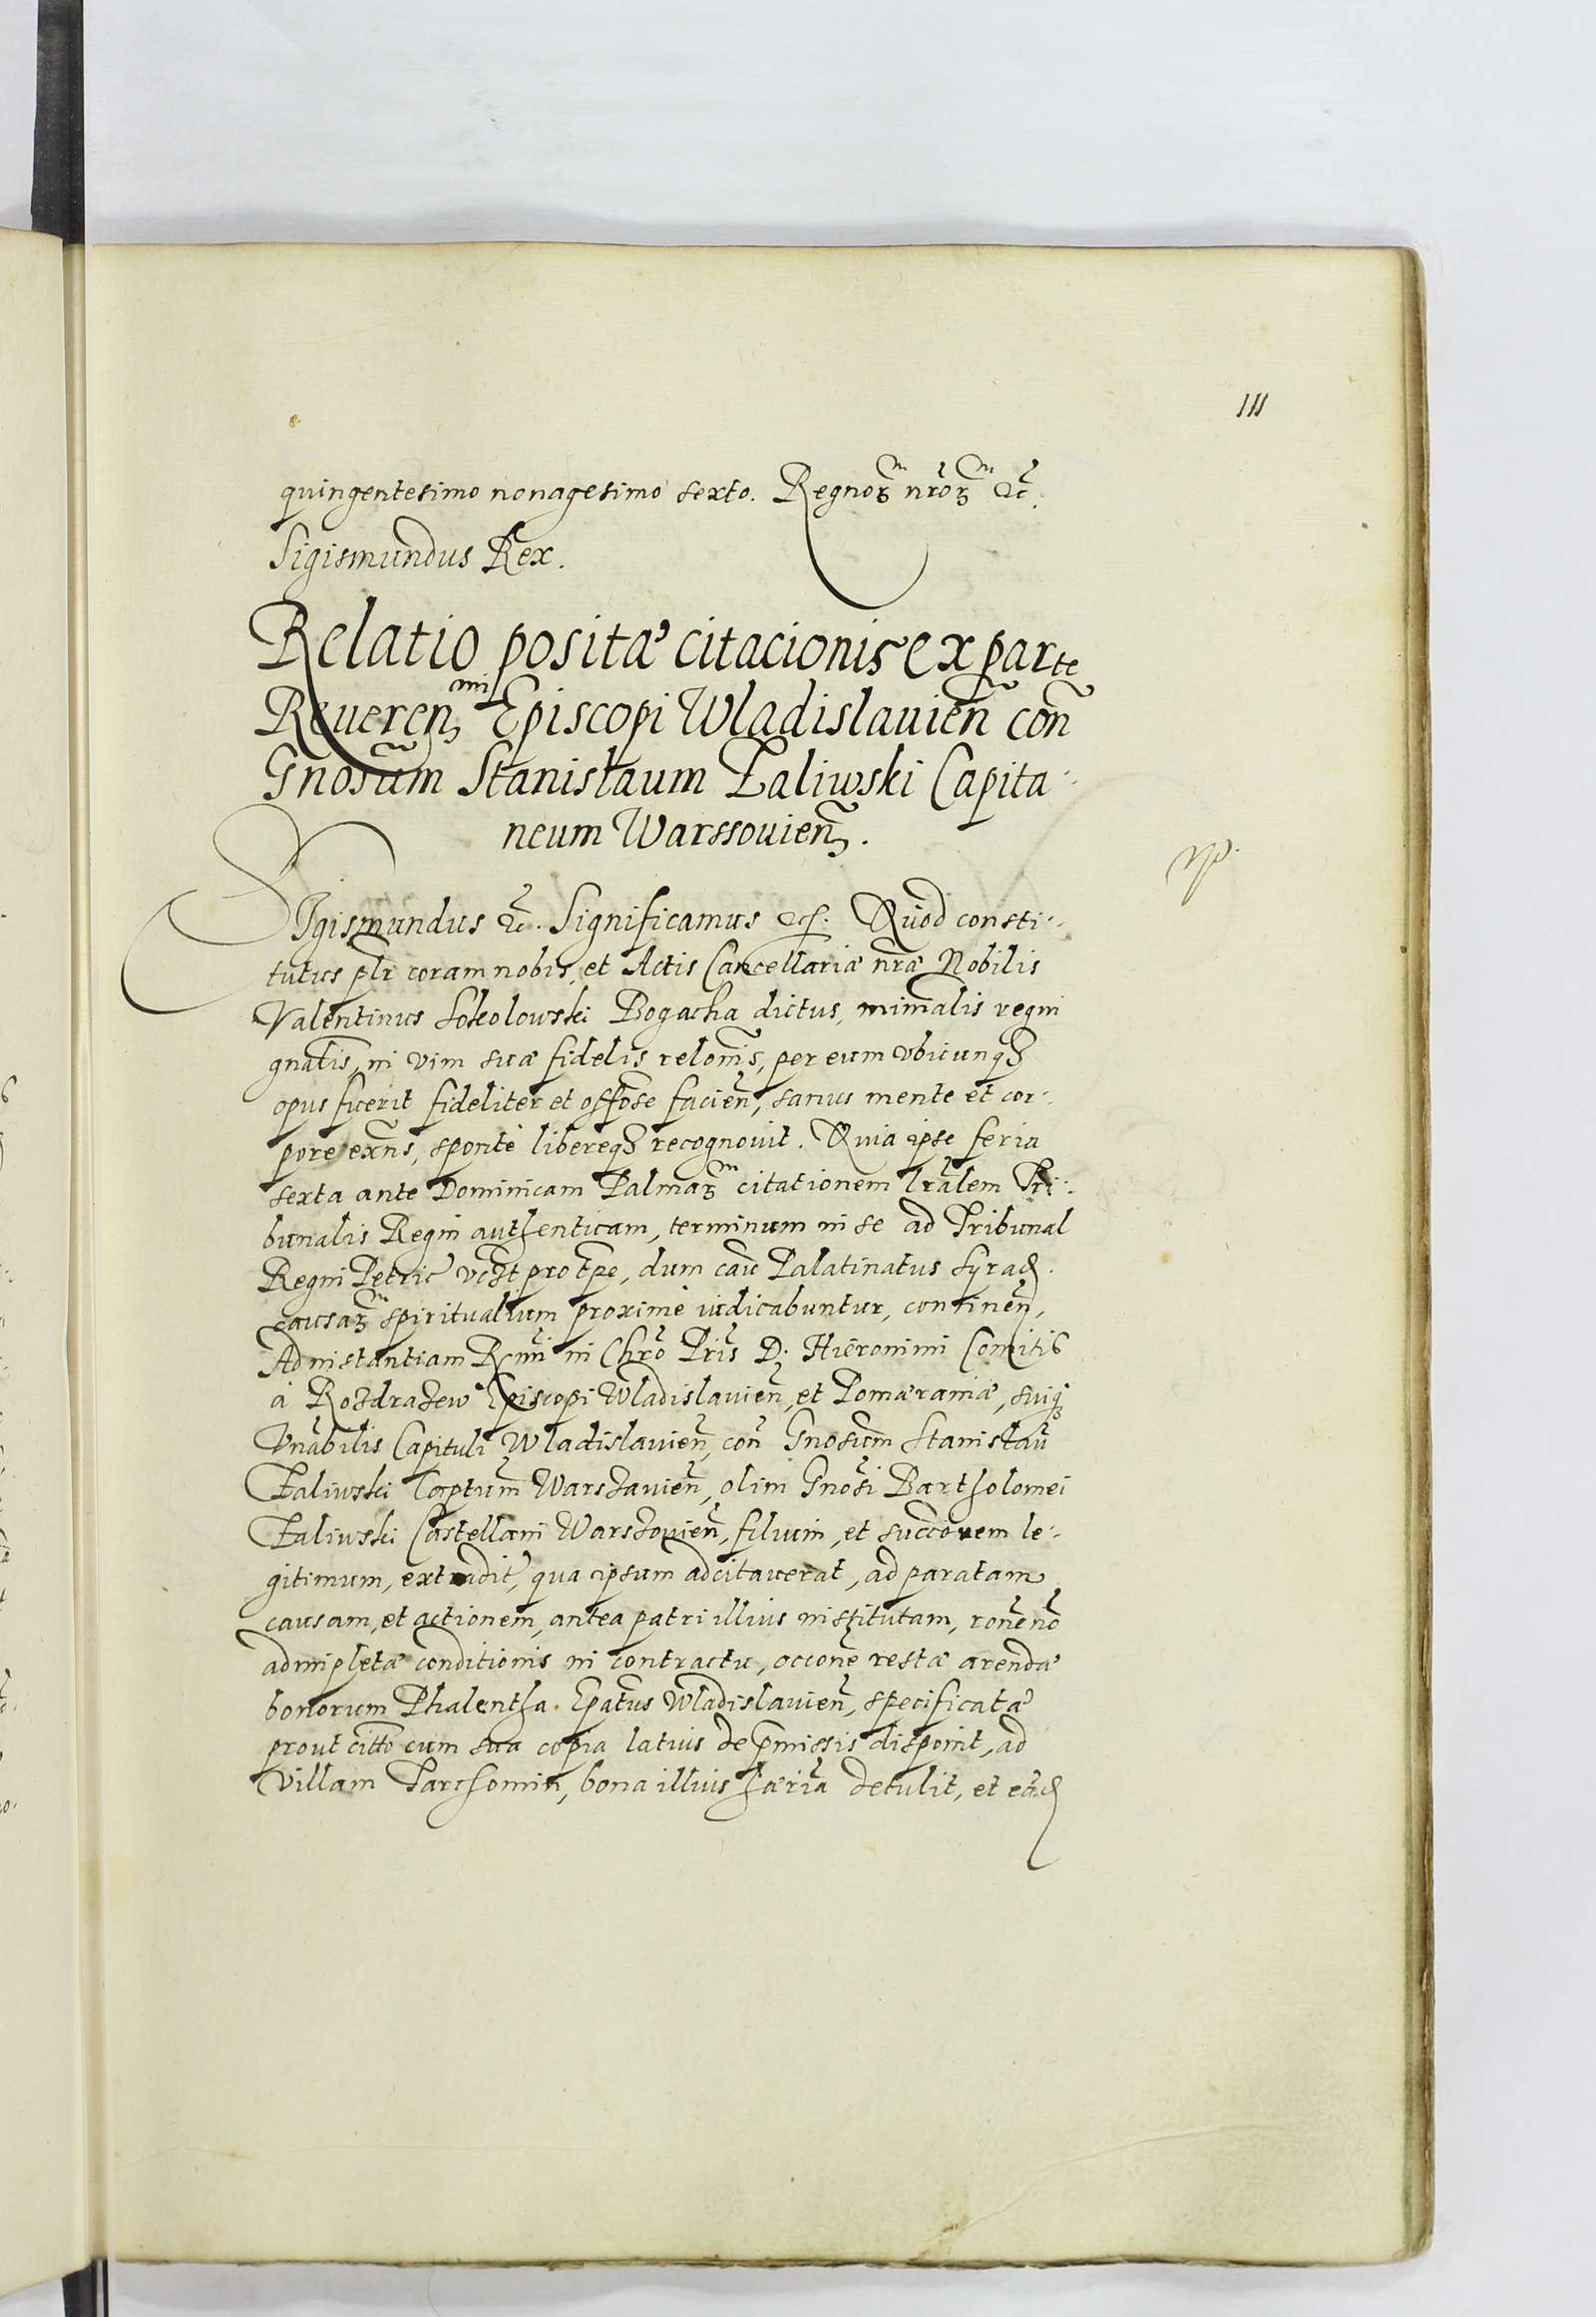 111
quingentesimo nonagesimo sexto. Regnoꝝ nr̃oꝝ ꝛc̃.
Sigismundus Rex.
Relatio positæ citacionis ex parte
Reueren^mi Episcopi Wladislauien̄ con̄
Gnosũm Stanislaum Zaliwski Capita-
neum Warssouien̄.
SIgismundus ꝛc̃. Significamus ꝛc. Quod consti-
tutus pl̃r coram nobis, et Actis Cancellariæ nr̃æ Nobilis
Valentinus Sokolowski Bogacka dictus, minr̃alis regni
gnãlis, in vim suæ fidelis relon̄is, per eum vbicunqȝ
opus fuerit fideliter et off̃ose facien̄, sanus mente et cor-
pore exñs, sponte libereqȝ recognouit. Quia ipse feria
sexta ante Dominicam Palmaꝝ citationem lr̃alem Tri-
bunalis Regni authenticam, terminum in se ad Tribunal
Regni Petric̃ pro tp̃e, dum cau Palatinatus Syrad.
causaꝝ spiritualium proxime iudicabuntur, continen̄,
Ad instantiam Rm̃i in Chr̃o Pr̃is D. Hieronimi Comitis
à Rozdrazew Episcopi Wladislauien̄, et Pomæraniæ, suiqȝ
Vn̄abilis Capituli Wladislauien̄, con̄ Gnosũm Stanislaũ
Zaliwski Captũm Warszauien̄, olim Gnõsi Bartholomei
Zaliwski Castellani Warszouien̄, filium, et succ̃orem le-
gitimum, extradit, qua ipsum adcitauerat, ad paratam
causam, et actionem, antea patri illius institutam, rõne nõ
adimpletæ conditionis in contractu, occõne restæ arendæ
bonorum Phalentha Ep̃atus Wladislauien̄, specificatæ
prout citt̃o cum sua copia latius de p̃missis disponit, ad
villam Tarchomin, bona illius hær̃ia detulit, et eãd